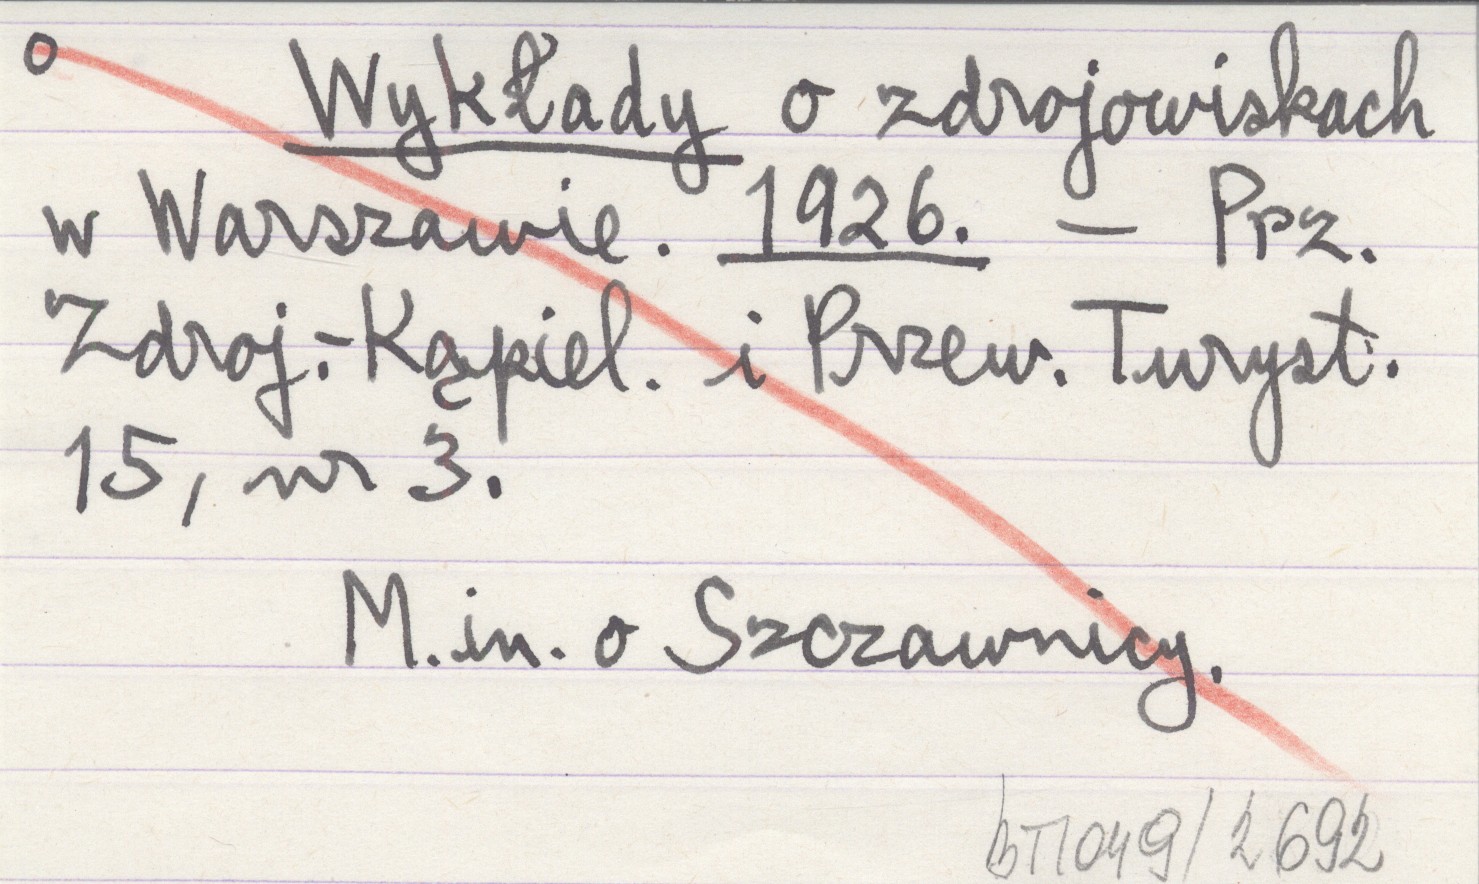 o Wykłady o zdrojowiskach
w Warszawie. 1926. — Prz.
Zdroj.-Kąpiel. i Przew. Turyst.
15, nr 3.
M. in. o Szczawnicy.
BT1049/2692